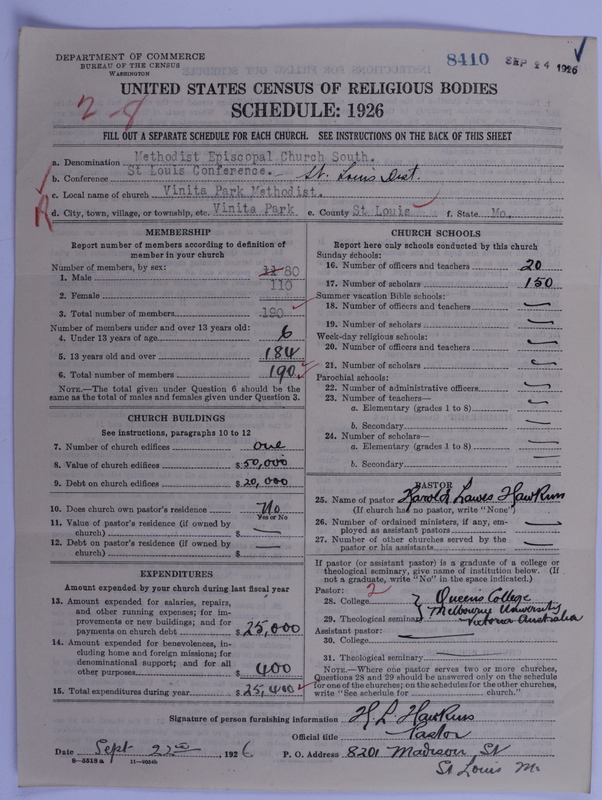 DEPARTMENT OF COMMERCE
BUREAU OF THE CENSUS
WASHINGTON
8410 SEP 24 1926
2-8
UNITED STATES CENSUS OF RELIGIOUS BODIES
SCHEDULE: 1926
FILL OUT A SEPARATE SCHEDULE FOR EACH CHURCH. SEE INSTRUCTIONS ON THE BACK OF THIS SHEET
a. Denomination Methodist Episcopal Church South.
b. Conference St Louis Conference. St. Louis Dist.
c. Local name of church Vinita Park Methodist.
d. City, town, village, or township, etc. Vinita Park e. County St Louis f. State Mo.
MEMBERSHIP
Report number of members according to definition of
member in your church
Number of members, by sex:
1. Male 80
2. Female 110
3. Total number of members 190
Number of members under and over 13 years old:
4. Under 13 years of age 6
5. 13 years old and over 184
6. Total number of members 190
NOTE.—The total given under Question 6 should be the
same as the total of males and females given under Question 3.
CHURCH BUILDINGS
See instructions, paragraphs 10 to 12
7. Number of church edifices one
8. Value of church edifices $50,000
9. Debt on church edifices $20,000
10. Does church own pastor's residence No
Yes or No
11. Value of pastor's residence (if owned by
church) $
12. Debt on pastor's residence (if owned by
church) $
EXPENDITURES
Amount expended by your church during last fiscal year
13. Amount expended for salaries, repairs,
and other running expenses; for im-
provements or new buildings; and for
payments on church debt $25,000
14. Amount expended for benevolences, in-
cluding home and foreign missions; for
denominational support; and for all
other purposes $400
15. Total expenditures during year $25,400
CHURCH SCHOOLS
Report here only schools conducted by this church
Sunday schools:
16. Number of officers and teachers 20
17. Number of scholars 150
Summer vacation Bible schools:
18. Number of officers and teachers
19. Number of scholars
Week-day religious schools:
20. Number of officers and teachers
21. Number of scholars
Parochial schools:
22. Number of administrative officers
23. Number of teachers—
a. Elementary (grades 1 to 8)
b. Secondary
24. Number of scholars—
a. Elementary (grades 1 to 8)
b. Secondary
PASTOR
25. Name of pastor Harold Lawes Hawkins
(If church has no pastor, write "None")
26. Number of ordained ministers, if any, em-
ployed as assistant pastors
27. Number of other churches served by the
pastor or his assistants
If pastor (or assistant pastor) is a graduate of a college or
theological seminary, give name of institution below. (If
not a graduate, write "No" in the space indicated.)
Pastor: 2
28. College Queens College
Melbourne University
29. Theological seminary Victoria Australia
Assistant pastor:
30. College
31. Theological seminary
NOTE.—Where one pastor serves two or more churches,
Questions 28 and 29 should be answered only on the schedule
for one of the churches; on the schedules for the other churches,
write "See schedule for church."
Signature of person furnishing information H. L. Hawkins
Official title Pastor
Date Sept 22nd, 1926 P. O. Address 8201 Madison St
8-5518a 11-9024b St Louis Mo.